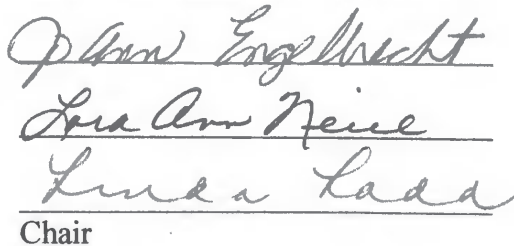 JoAnn Engelbrecht
Lora Ann Neill
Linda Ladd
Chair